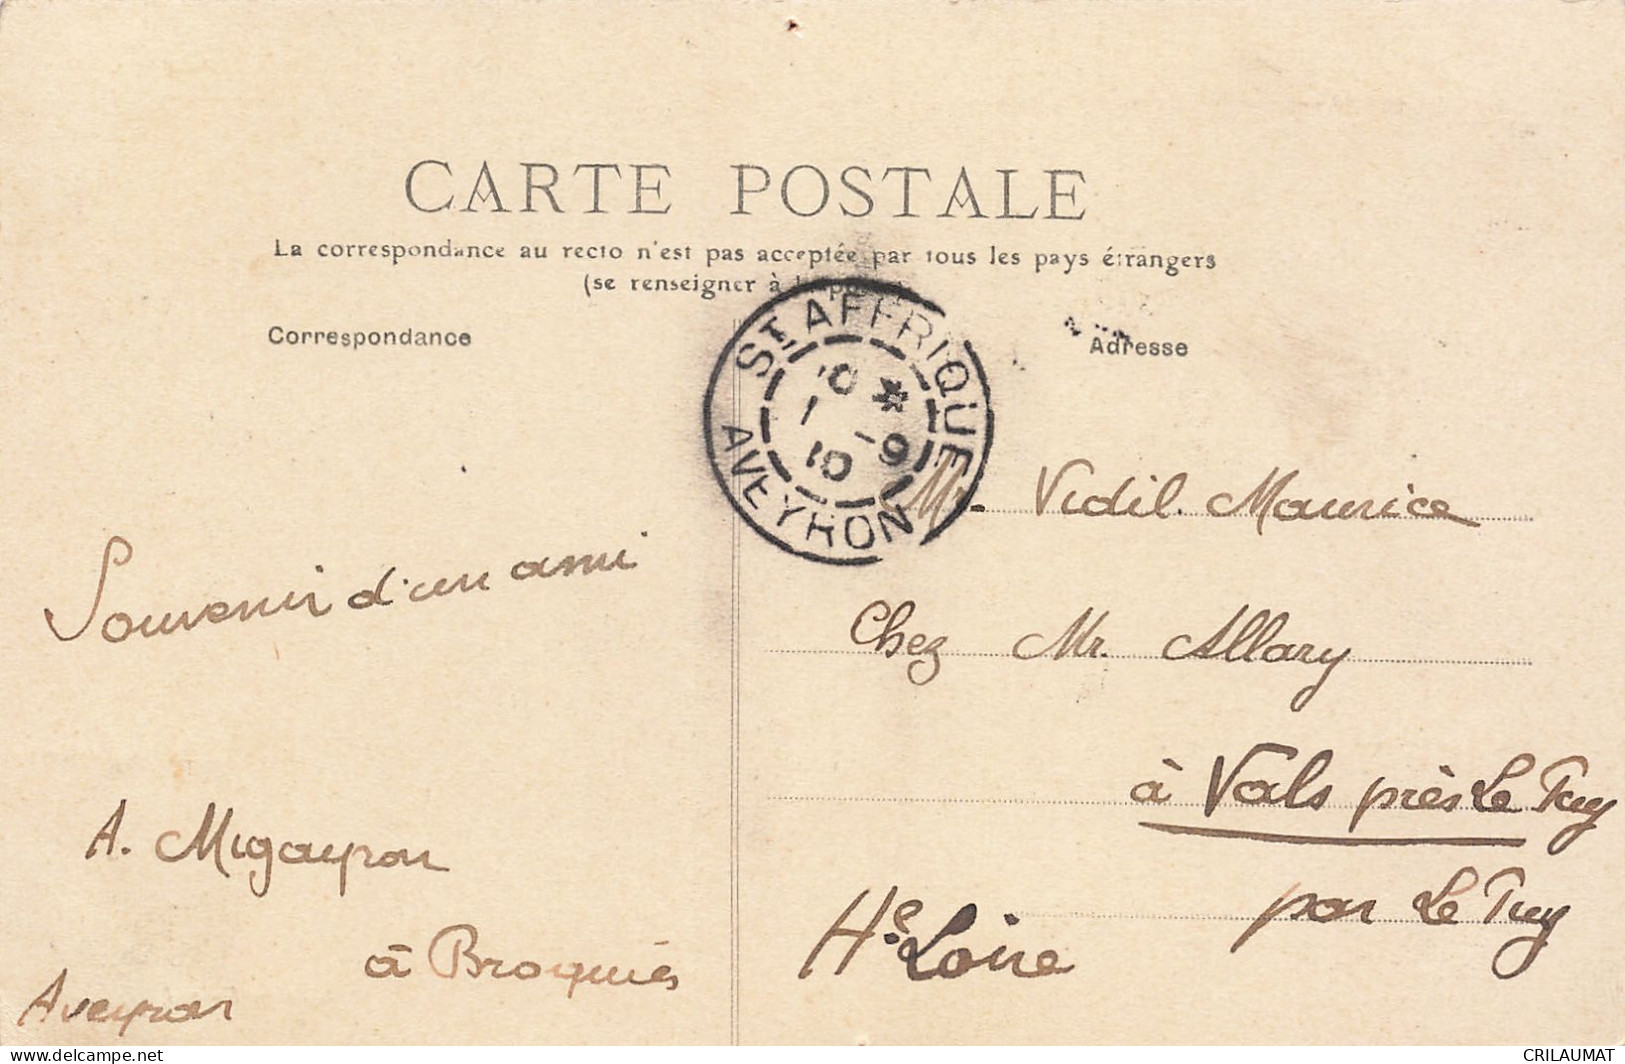 CARTE POSTALE
La correspondance au recto n'est pas acceptée par tous les pays étrangers
(se renseigner à la poste)
Correspondance
Adresse
ST AFFRIQUE
10 *
1 -9
10
AVEYRON
Mr. Vidil. Maurice
Chez Mr. Allary
à Vals près Le Puy
par Le Puy
Hte Loire
Souvenir d'un ami
A. Migayron
à Broquiés
Aveyron
delcampe.net
CRILAUMAT